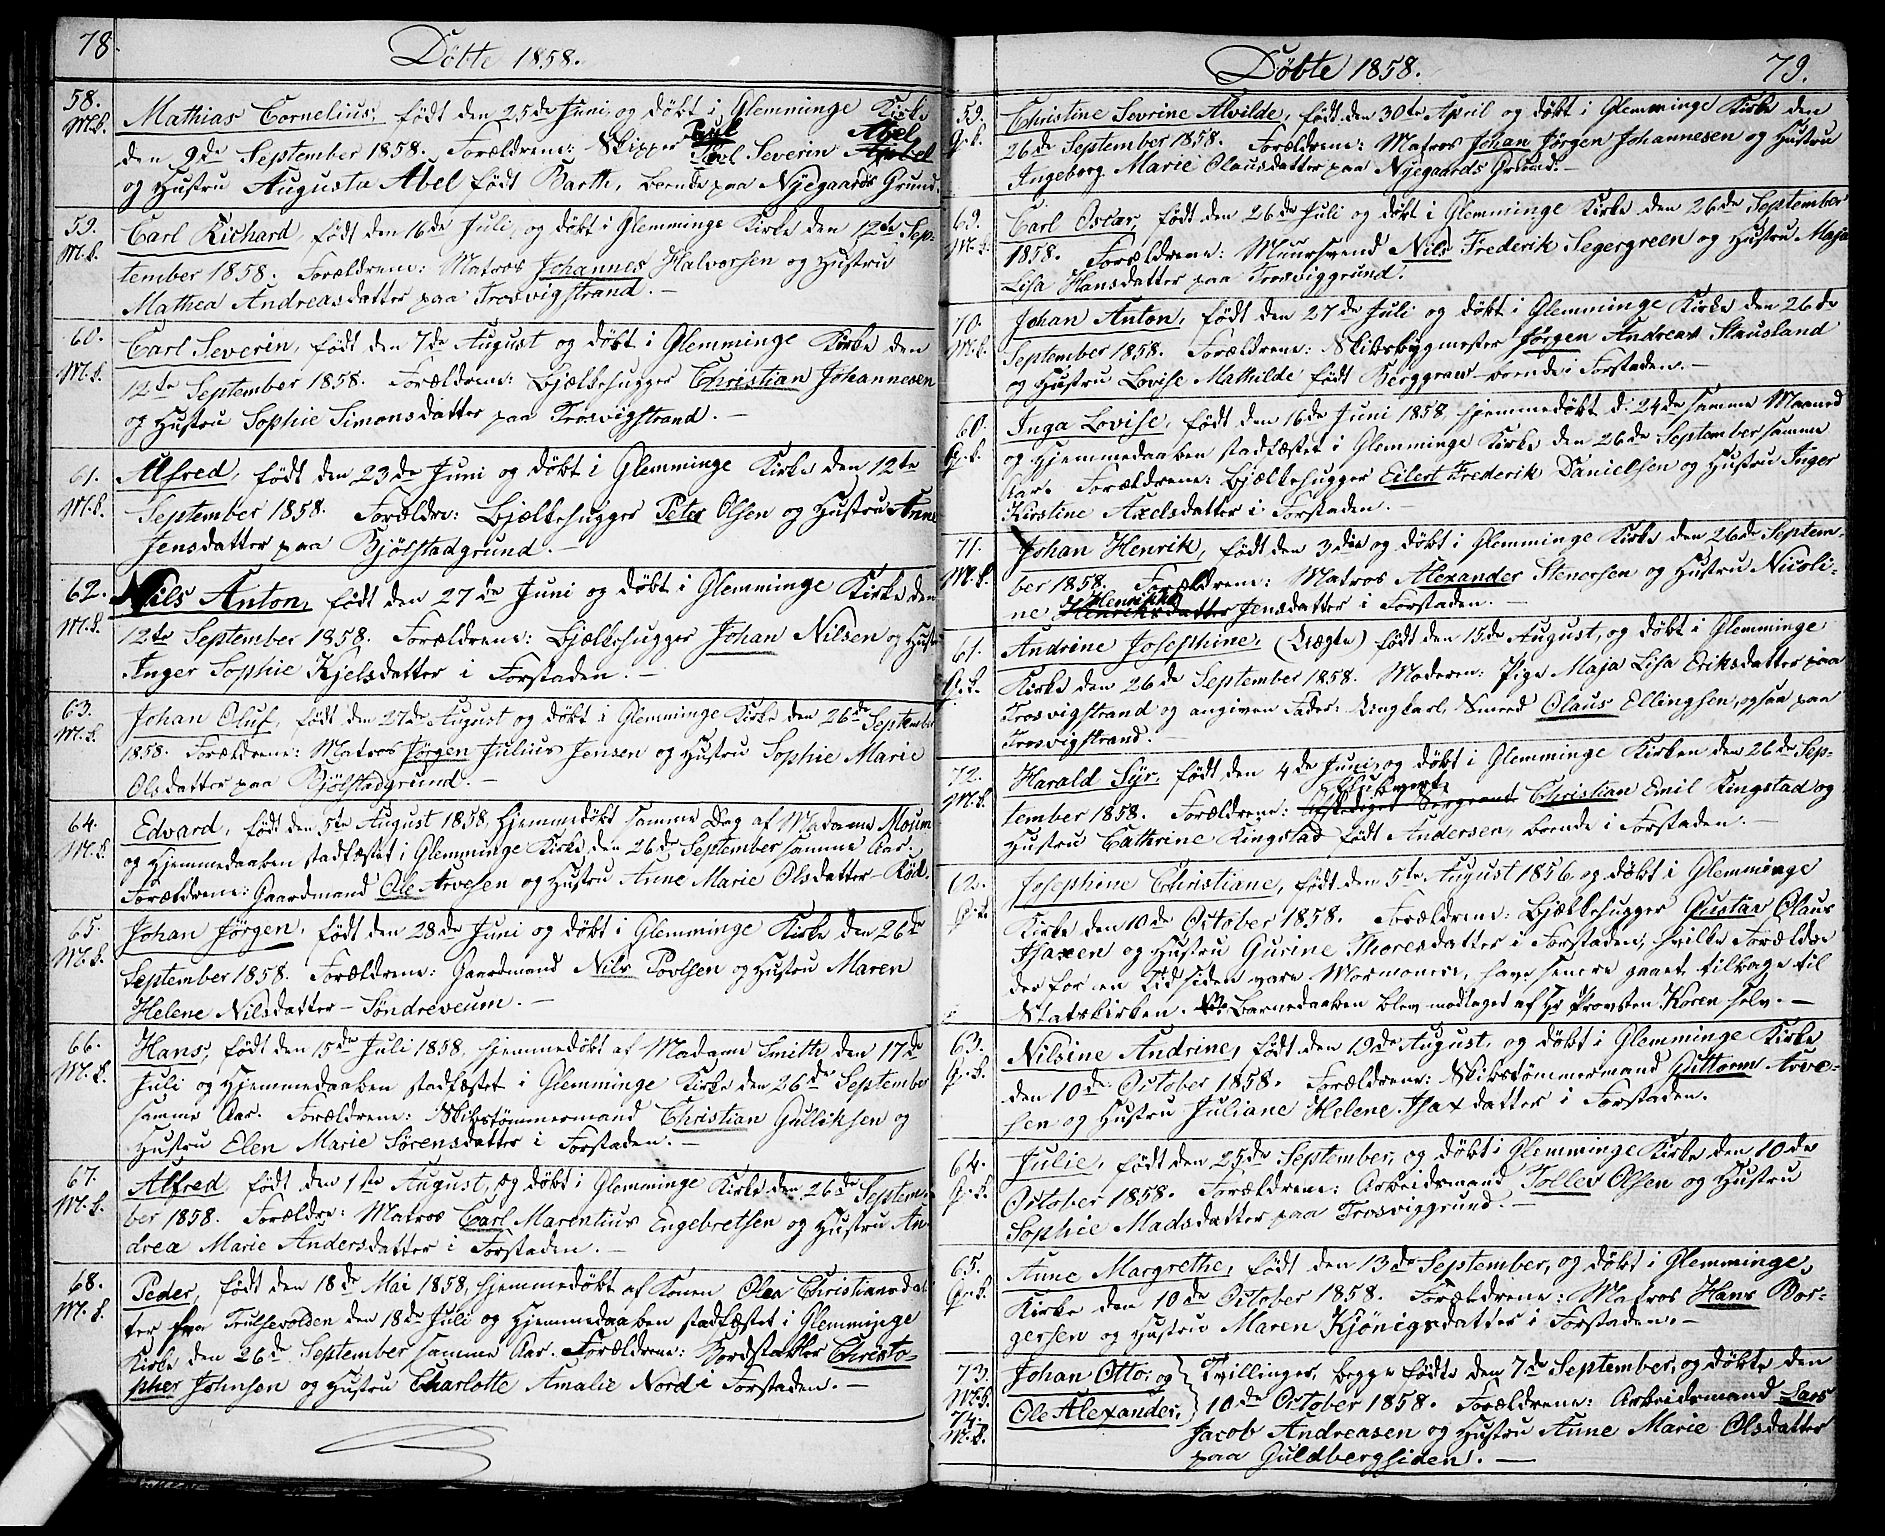 78.
Döbte 1858.
58. Mathias Cornelius, født den 25de Juni og døbt i Glemminge Kirke
M.k. den 9de September 1858. Forældrene: Skipper Paul Severin Abel
og Hustru Augusta Abel født Barth, boende paa Nyegaards Grund.
59. Carl Richard, født den 16de Juli, og døbt i Glemminge Kirke den 12te Sep-
M.k. tember 1858. Forældrene: Matros Johannes Halvorsen og Hustru
Mathea Andreasdatter paa Trosvigstrand. —
60. Carl Severin, født den 7de August og døbt i Glemminge Kirke den
M.k. 12te September 1858. Forældrene: Bjælkehugger Christian Johannesen
og Hustru Sophie Simonsdatter paa Trosvigstrand. —
61. Alfred, født den 23de Juni og døbt i Glemminge Kirke den 12te
M.k. September 1858. Forældre: Bjælkehugger Peter Olsen og Hustru Anne
Jensdatter paa Bjølstadgrund. —
62. Nils Anton, født den 27de Juni og døbt i Glemminge Kirke den
M.k. 12te September 1858. Forældrene: Bjælkehugger Johan Nilsen og Hustru
Inger Sophie Kjelsdatter i Forstaden. —
63. Johan Oluf, født den 27de August og døbt i Glemminge Kirke den 26de September
M.k. 1858. Forældrene: Matros Jørgen Julius Jensen og Hustru Sophie Marie
Olsdatter paa Bjölstadgrund. —
64. Edvard, født den 5te August 1858, hjemmedøbt samme Dag af Madame Moum
M.k. og Hjemmedaaben stadfæstet i Glemminge Kirke den 26de September samme Aar.
Forældrene: Gaardmand Ole Arvesen og Hustru Anne Marie Olsdatter
65. Johan Jørgen, født den 28de Juni og døbt i Glemminge Kirke den 26de
M.k. September 1858. Forældrene: Gaardmand Nils Povlsen og Hustru Maren
Helene Nilsdatter – Søndreveum. —
66. Hans, født den 15de Juli 1858, hjemmedøbt af Madame Smith den 17de
M.k. Juli og Hjemmedaaben stadfæstet i Glemminge Kirke den 26de September
samme Aar. Forældrene: Skibstømmermand Christian Gulliksen og
Hustru Elen Marie Sørensdatter i Forstaden. —
67. Alfred født den 1ste August, og døbt i Glemminge Kirke den 26de Septem-
M.k. ber 1858. Forældre: Matros Carl Marentius Engebretsen og Hustru An-
drea Marie Andersdatter i Forstaden. —
68. Peder, født den 18de Mai 1858, hjemmedøbt af Konen Olea Christiansdat-
M.k. ter fra Trulsevolden den 18de Juli og Hjemmedaaben stadfæstet i Glemminge
Kirke den 26de September samme Aar. Forældrene: Bordstabler Christo-
pher Johnsen og Hustru Charlotte Amalie Nord i Forstaden. —
Döbte 1858.
79.
59. Christine Sevrine Alvilde, født den 30te April og døbt i Glemminge Kirke den
Q.k. 26de September 1858. Forældrene: Matros Johan Jørgen Johannesen og Hustru
Ingeborg Marie Olausdatter paa Nyegaards Grund. —
69. Carl Oscar, født den 26de Juli og døbt i Glemminge Kirke den 26de September
M.k. 1858. Forældrene: Muursvend Nils Frederik Segergreen og Hustru Maja
Lisa Hansdatter paa Trosviggrund.
70. Johan Anton, født den 27de Juli og døbt i Glemminge Kirke den 26de
M.k. September 1858. Forældrene: Skibsbygmester Jørgen Andreas Stausland
og Hustru Lovise Mathilde født Berggraw boende i Forstaden. —
60. Inga Lovise, født den 16de Juni 1858 hjemmedøbt d. 24de samme Maaned
Q.k. og Hjemmedaaben stadfæstet i Glemminge Kirke den 26de September samme
Aar. Forældrene: Bjælkehugger Eilert Frederik Danielsen og Hustru Inger
Kirstine Axelsdatter i Forstaden. —
71. Johan Henrik, født den 3die og døbt i Glemminge Kirke den 26de Septem-
M.k. ber 1858. Forældrene: Matros Alexander Stenersen og Hustru Nicoli-
ne Henriksdatter Jensdatter i Forstaden. —
61. Andrine Josephine, (Uægte) født den 15de August, og døbt i Glemminge
Q.k. Kirke den 26de September 1858. Moderen: Pige Maja Lisa Eriksdatter paa
Trosvigstrand og angiven Fader: Ungkarl, Smed Olaus Ellingsen, ogsaa paa
Trosvigstrand. —
72. Harald Syr, født den 4de Juni, og døbt i Glemminge Kirken den 26de Sep-
M.k. tember 1858. Forældrene: Christian Emil Ringstad og
Hustru Cathrine Ringstad født Andersen, boende i Forstaden. —
62. Josephine Christiane, født den 5te August 1856 og døbt i Glemminge
Q.k. Kirke den 10de October 1858. Forældrene: Bjælkehugger Gustav Olaus
Isaxen og Hustru Gurine Thoresdatter i Forstaden, hvilke Forældre
der for en Tid siden vare Mormoner, have senere gaaet tilbage til
Statskirken. Barnedaaben blev modtaget af Hr Provsten Koren selv. —
63. Nilsine Andrine, født den 19de August, og døbt i Glemminge Kirke
Q.k. den 10de October 1858. Forældrene: Skibstømmermand Guttorm Arve-
sen og Hustru Juliane Helene Isaxdatter i Forstaden.
64. Julie, født den 25de September, og døbt i Glemminge Kirke den 10de
Q.k. October 1858. Forældrene: Arbeidsmand Tollev Olsen og Hustru
Sophie Madsdatter paa Trosviggrund. —
65. Anne Margrethe, født den 13de September, og døbt i Glemminge
Q.k. Kirke den 10de October 1858. Forældrene: Matros Hans Bor-
gersen og Hustru Maren Kjönigsdatter i Forstaden. —
73. Johan Otto, og Tvillinger, begge fødte den 7de September, og døbte den
M.k. 74. Ole Alexander, 10de October 1858. Forældrene: Arbeidsmand Lars
M.k. Jacob Andreasen og Hustru Anne Marie Olsdatter
paa Guldbergsiden. —